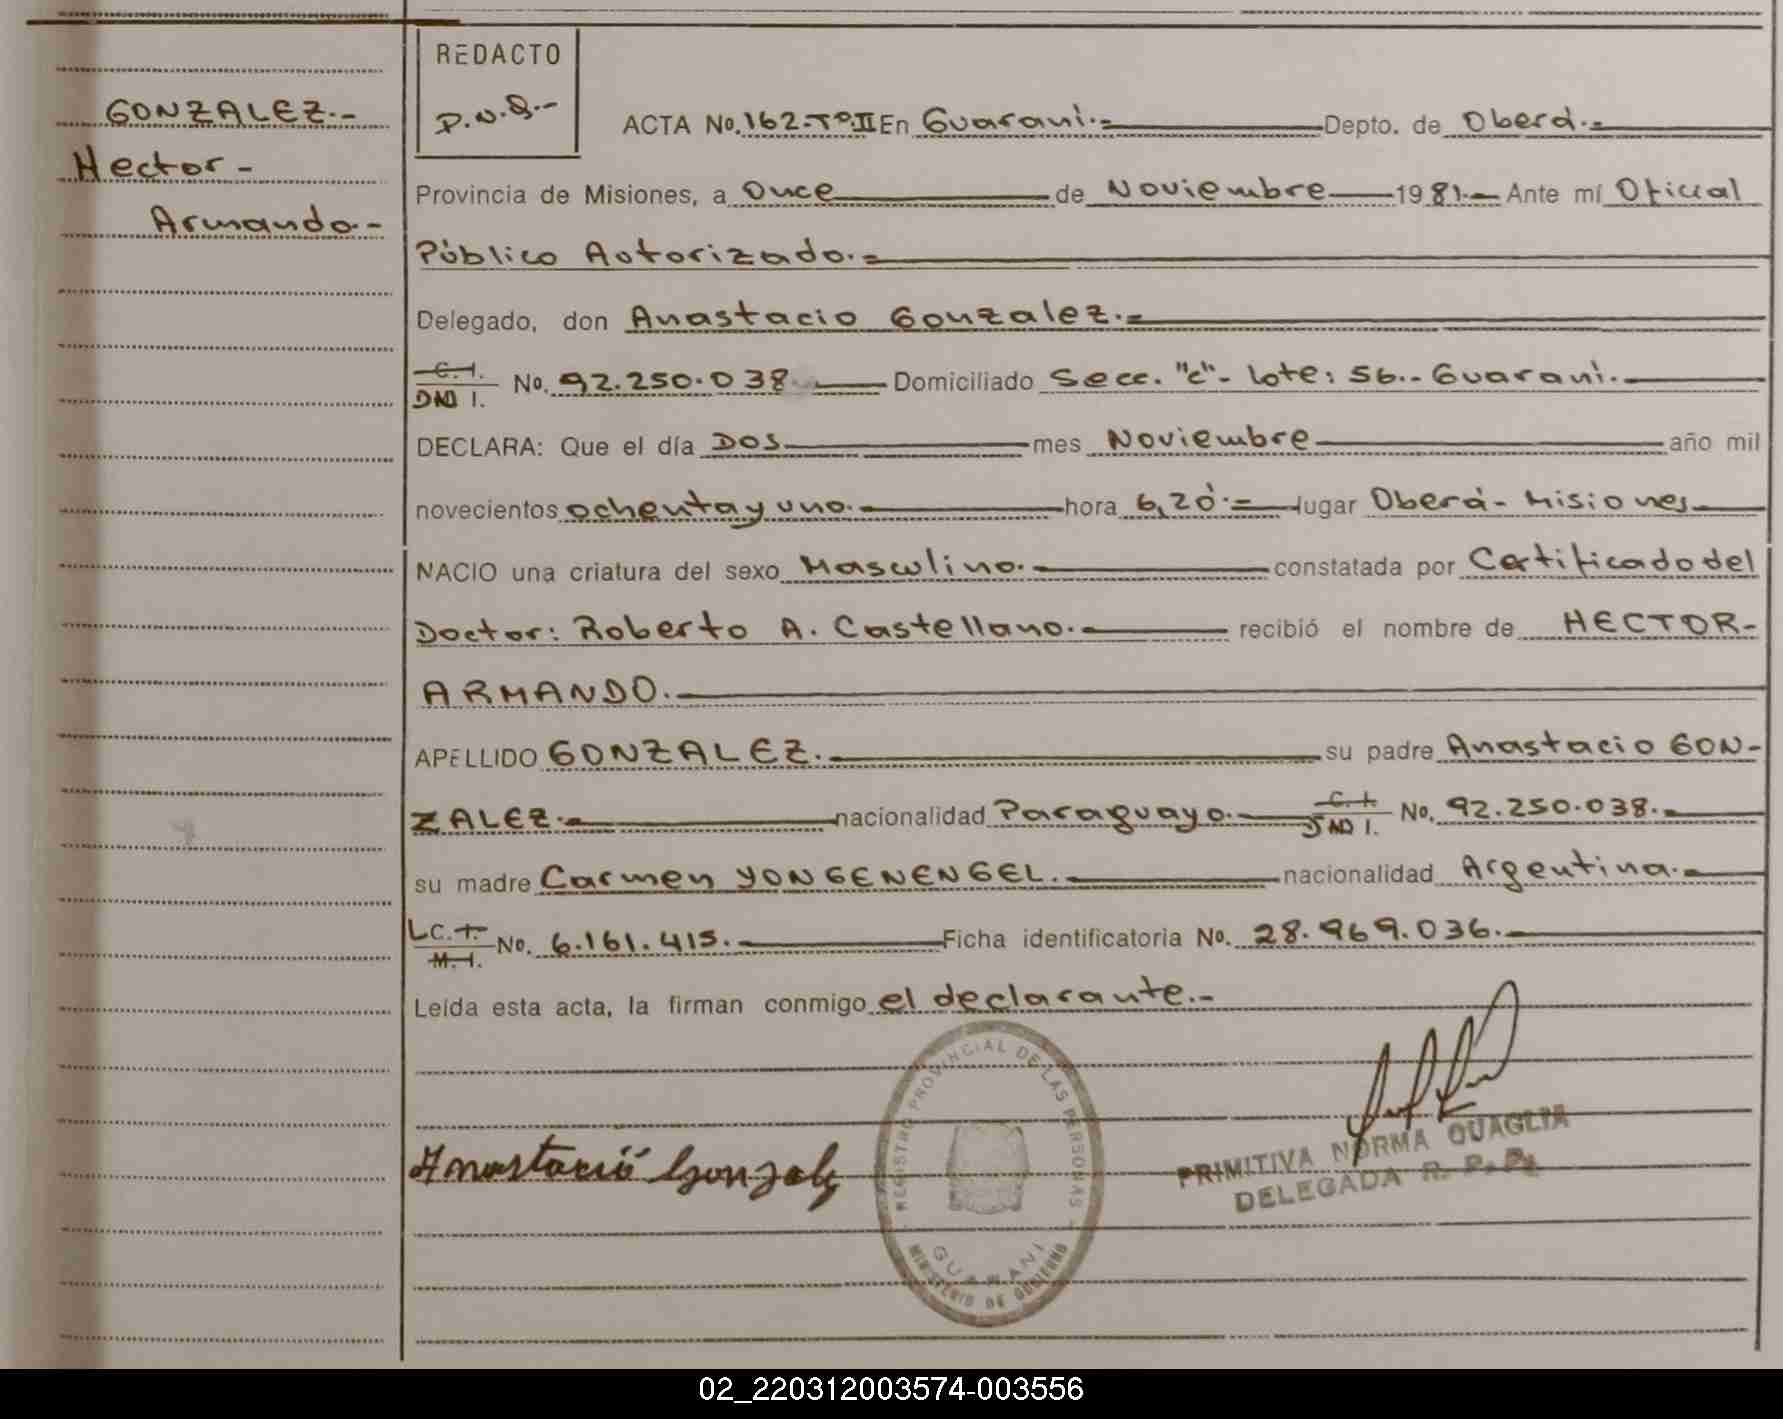 GONZALEZ.-
Hector -
Armando.-
REDACTO
P.N.Q.-
ACTA No. 162-Tº II En Guaraní.= Depto. de Oberá.=
Provincia de Misiones, a Once de Noviembre 1981.- Ante mí Oficial
Público Autorizado.=
Delegado, don Anastacio Gonzalez.=
C. I.
DNI I. No. 92.250.038 Domiciliado Secc. "c"- Lote: 56.- Guaraní.-
DECLARA: Que el día DOS mes Noviembre año mil
novecientos ochenta y uno. hora 6,20'.= lugar Oberá - Misiones
NACIO una criatura del sexo Masculino. constatada por Certificado del
Doctor: Roberto A. Castellano. recibió el nombre de HECTOR-
ARMANDO.
APELLIDO GONZALEZ. su padre Anastacio GON-
ZALEZ. nacionalidad Paraguayo. C. I.
DNI I. No. 92.250.038.
su madre Carmen YONGENENGEL. nacionalidad Argentina.
LC. I.
M. I. No. 6.161.415. Ficha identificatoria No. 28.969.036.
Leída esta acta, la firman conmigo el declarante.-
Anastacio Gonzalez
REGISTRO PROVINCIAL DE LAS PERSONAS
GUARANI
MINISTERIO DE GOBIERNO
PRIMITIVA NORMA QUAGLIA
DELEGADA R. P. P.
02_220312003574-003556